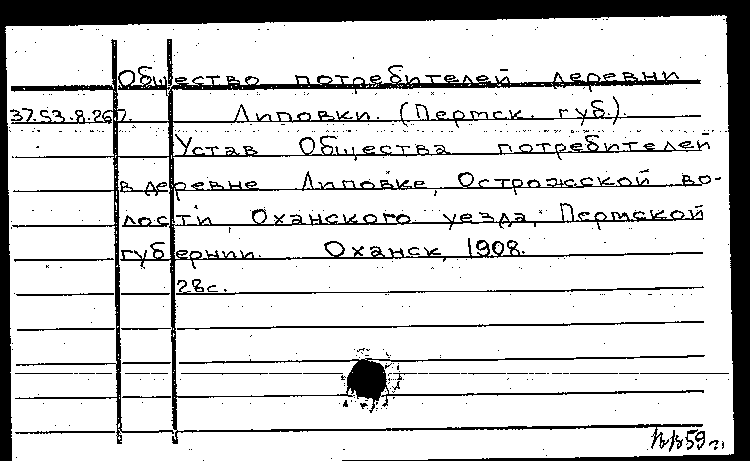 Общество потребителей деревни
37.53.8.267. Липовки. (Пермск. губ.).
Устав Общества потребителей
в деревне Липовке, Острожской во-
лости, Оханского уезда, Пермской
губернии. Оханск, 1908.
28с.